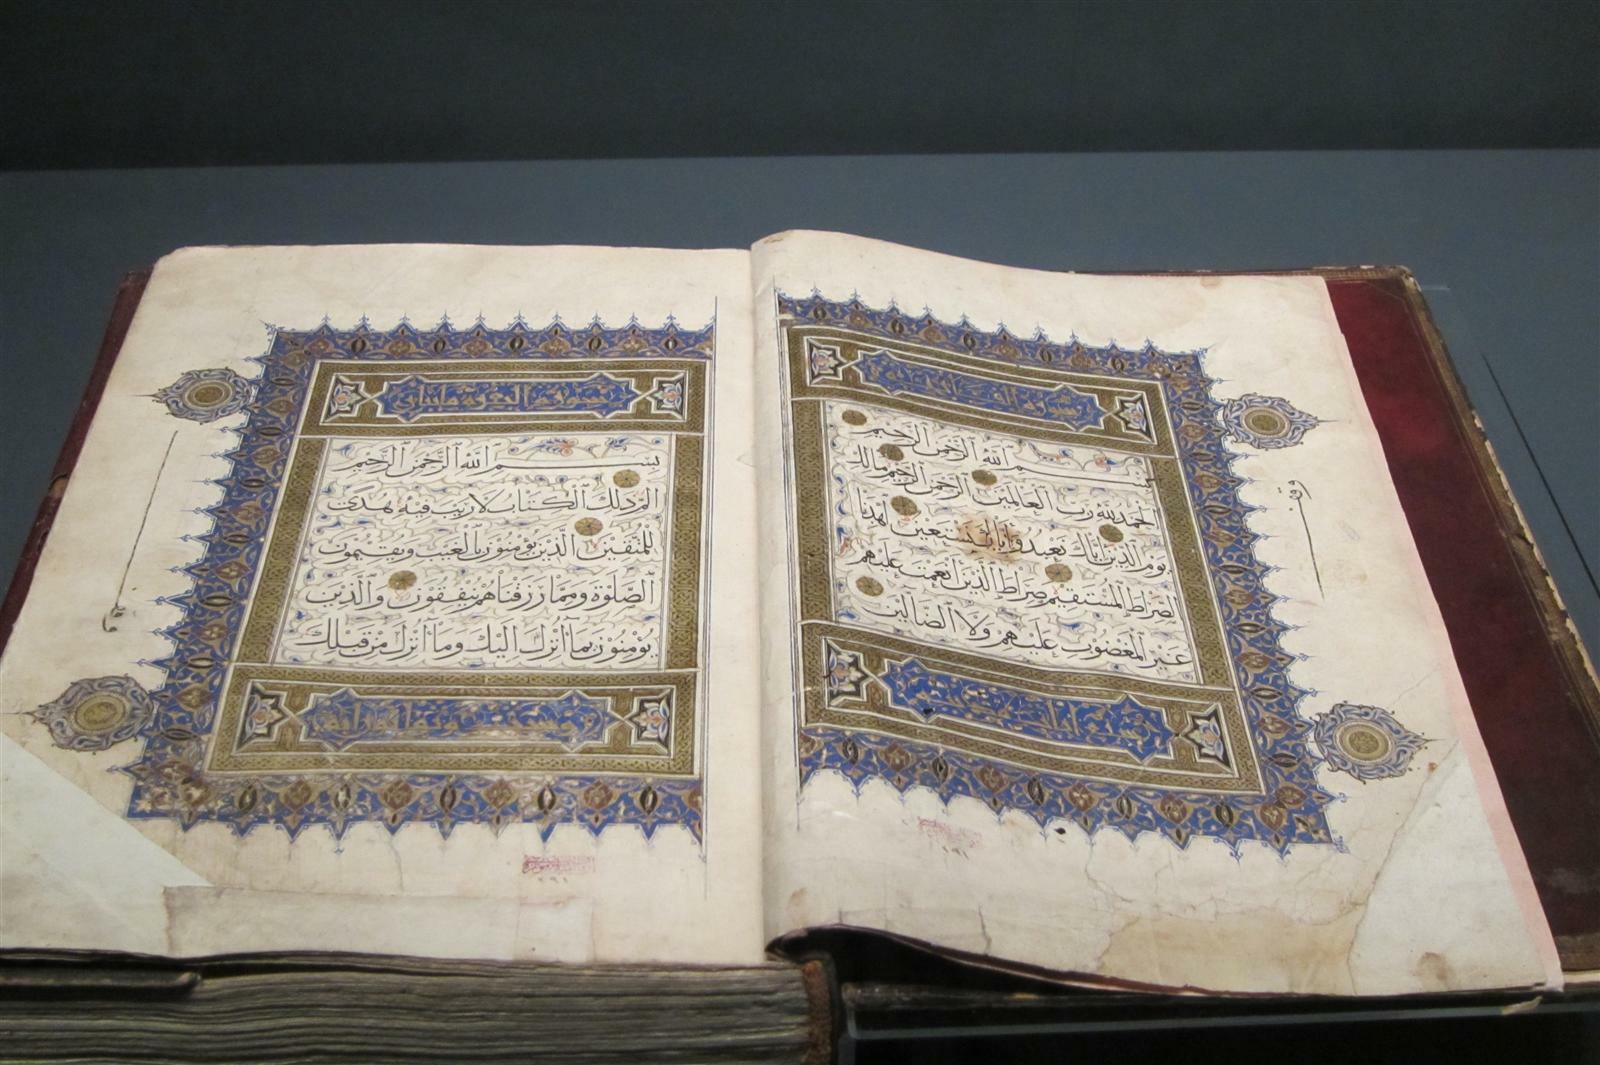 سورة
بِسْمِ اللهِ الرَّحْمٰنِ الرَّحِيمِ
الحمد لله رب العالمين الرحمن الرحيم مالك
يوم الدين اياك نعبد واياك نستعين اهدنا
الصراط المستقيم صراط الذين انعمت عليهم
غير المغضوب عليهم ولا الضالين
سورة البقرة مائتان
بِسْمِ اللهِ الرَّحْمٰنِ الرَّحِيمِ
الم ذلك الكتاب لا ريب فيه هدى
للمتقين الذين يؤمنون بالغيب ويقيمون
الصلوة ومما رزقناهم ينفقون والذين
يؤمنون بما انزل اليك وما انزل من قبلك